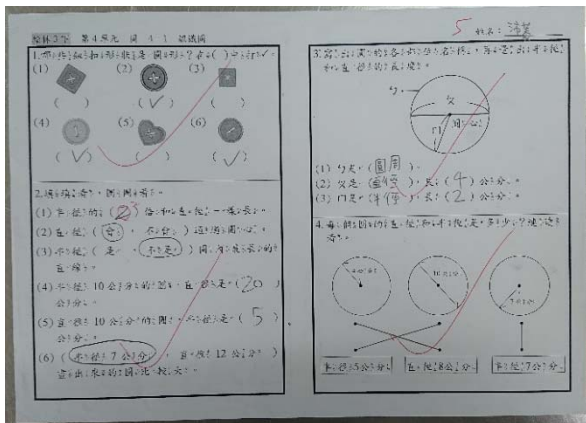 第4單元 圓 4-1 認識圓
姓名:
5
1.哪些鈕扣的形狀是圓形?在( )中打✓。
(1) (2) (3)
( ) (✓) ( )
(4) (5) (6)
(✓) ( ) (✓)
2.
(1) 半徑的(2)倍和直徑一樣長。
(2) 直徑(會, 不會)通過圓心。
(3) 半徑(是, 不是)圓內最長的
直線。
(4) 半徑10公分的圓,直徑是(20)
公分。
(5) 直徑10公分的圓,半徑是(5)
公分。
(6) (半徑7公分, 直徑12公分)
畫出來的圓比較大。
3.寫出圓的各部分名稱,
和直徑的長度。
ㄅ
ㄆ
ㄇ 圓心
(1) ㄅ是(圓周)。
(2) ㄆ是(直徑),長(4)公分。
(3) ㄇ是(半徑),長(2)公分。
4.每個圓的直徑和半徑是多少?連連
看。
半徑5公分 直徑8公分 半徑7公分